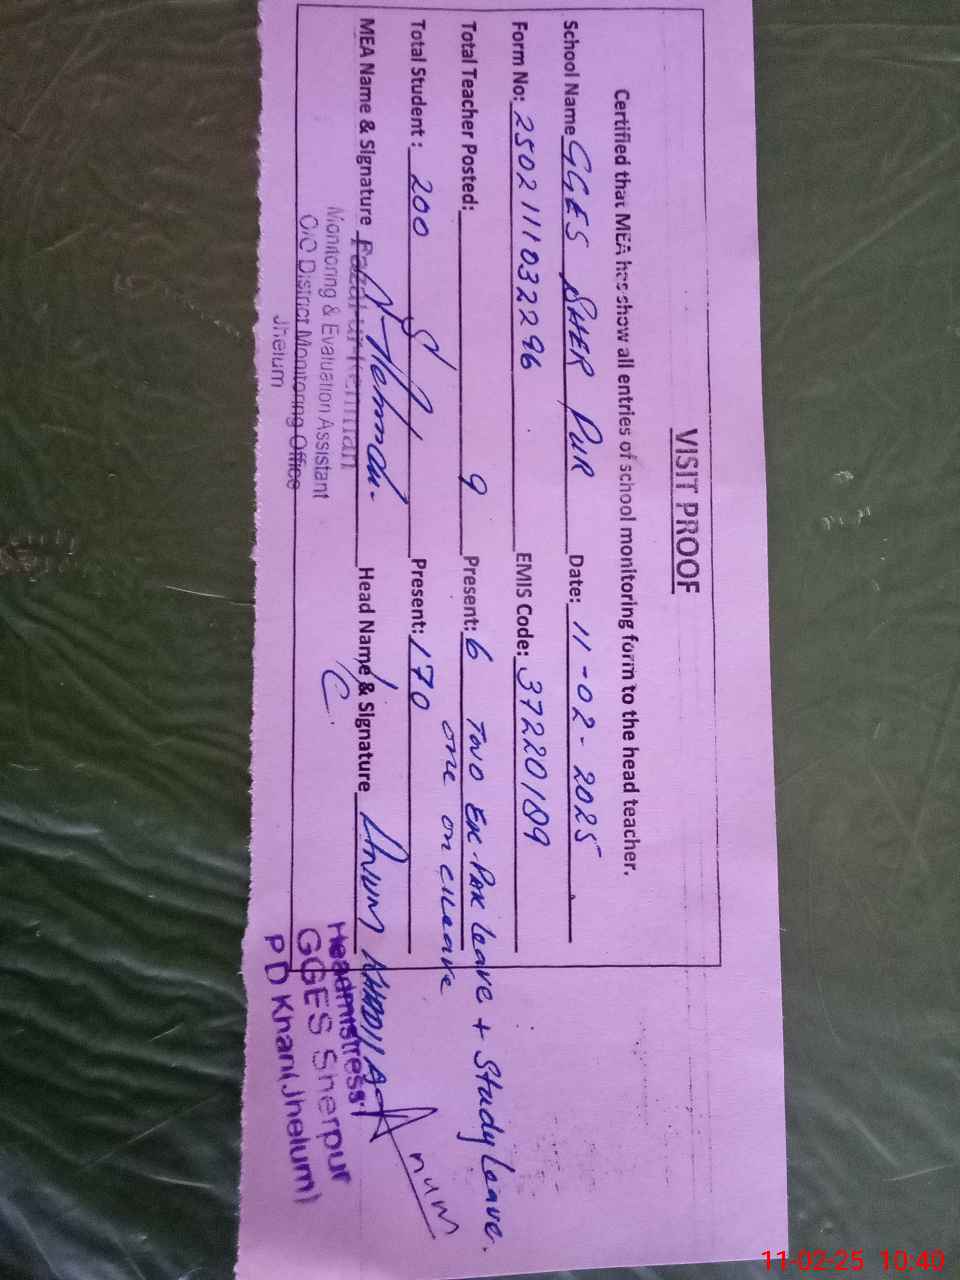 VISIT PROOF
Certified that MEA has show all entries of school monitoring form to the head teacher.
School Name GGES SHER PUR Date: 11-02-2025
Form No: 2502111032296 EMIS Code: 37220189
Total Teacher Posted: 9 Present: 6 Two Ex-Pak Leave + Study Leave.
one on cleave
Total Student: 200 Present: 170
MEA Name & Signature Head Name & Signature Anum
Monitoring & Evaluation Assistant
O/O District Monitoring Office
Jhelum
Headmistress
GGES Sherpur
P D Khan (Jhelum)
Anum
11-02-25 10:40